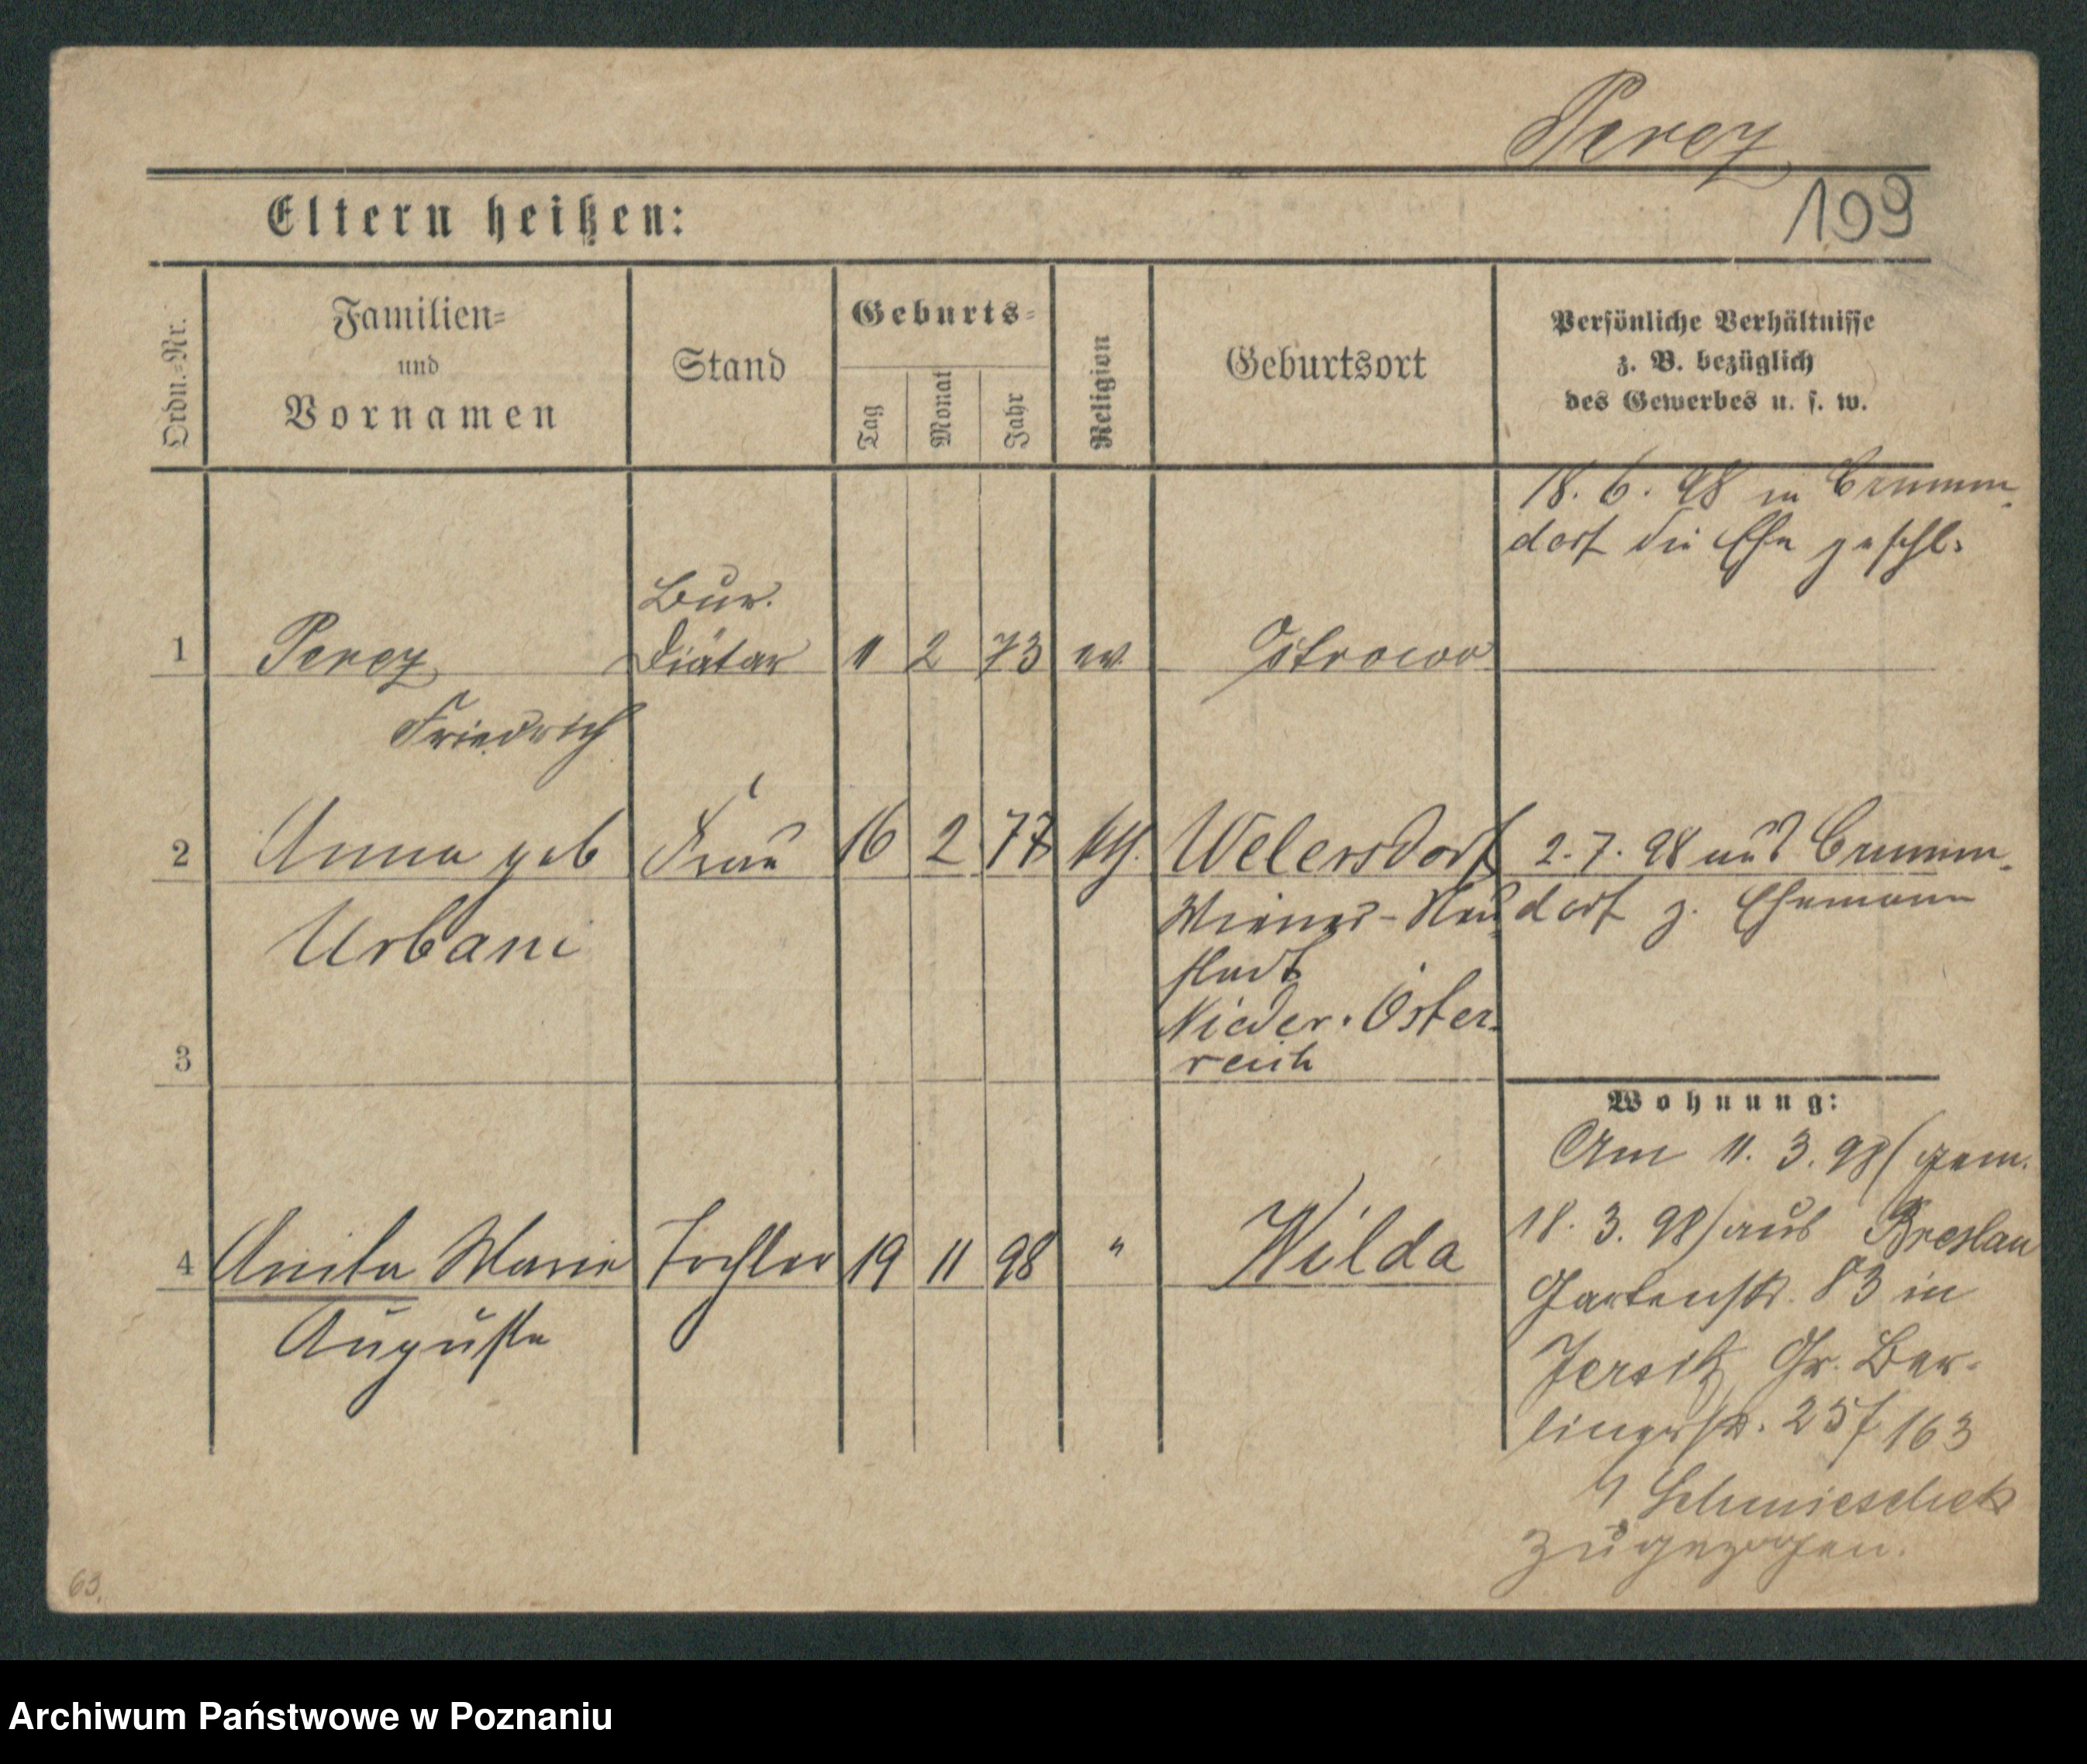 Perez
199
Eltern heißen:
Ordn.-Nr.
Familien-
und
Vornamen
Stand
Geburts-
Tag
Monat
Jahr
Religion
Geburtsort
Persönliche Verhältnisse
z. B. bezüglich
des Gewerbes u. s. w.
18. 6. 98 in Crumm-
dorf die Ehe geschl.
1 Perez Bur. Diätar 1 2 73 ev. Ostrowo
Friedrich
2 Anna geb Frau 16 2 77 kth. Welersdorf 2. 7. 98 aus Crumm-
Urbani Wiener-Neu- dorf z. Ehemann
stadt
Nieder-Öster-
reich
3
Wohnung:
Am 11. 3. 98 (gem.
18. 3. 98) aus Breslau
Gartenstr. 83 in
Jersitz Gr. Ber-
linerstr. 25f 163
Schmieschek
zugezogen.
4 Anita Marie Tochter 19 11 98 " Wilda
Auguste
63.
Archiwum Państwowe w Poznaniu